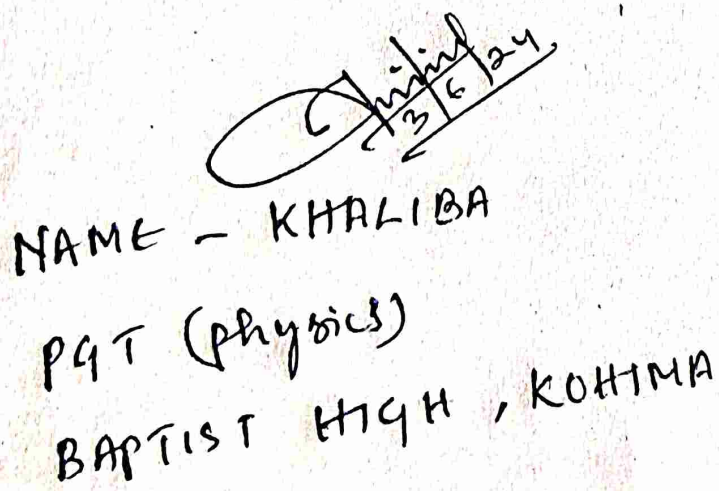 3/6/24
NAME - KHALIBA
PGT (Physics)
BAPTIST HIGH, KOHIMA